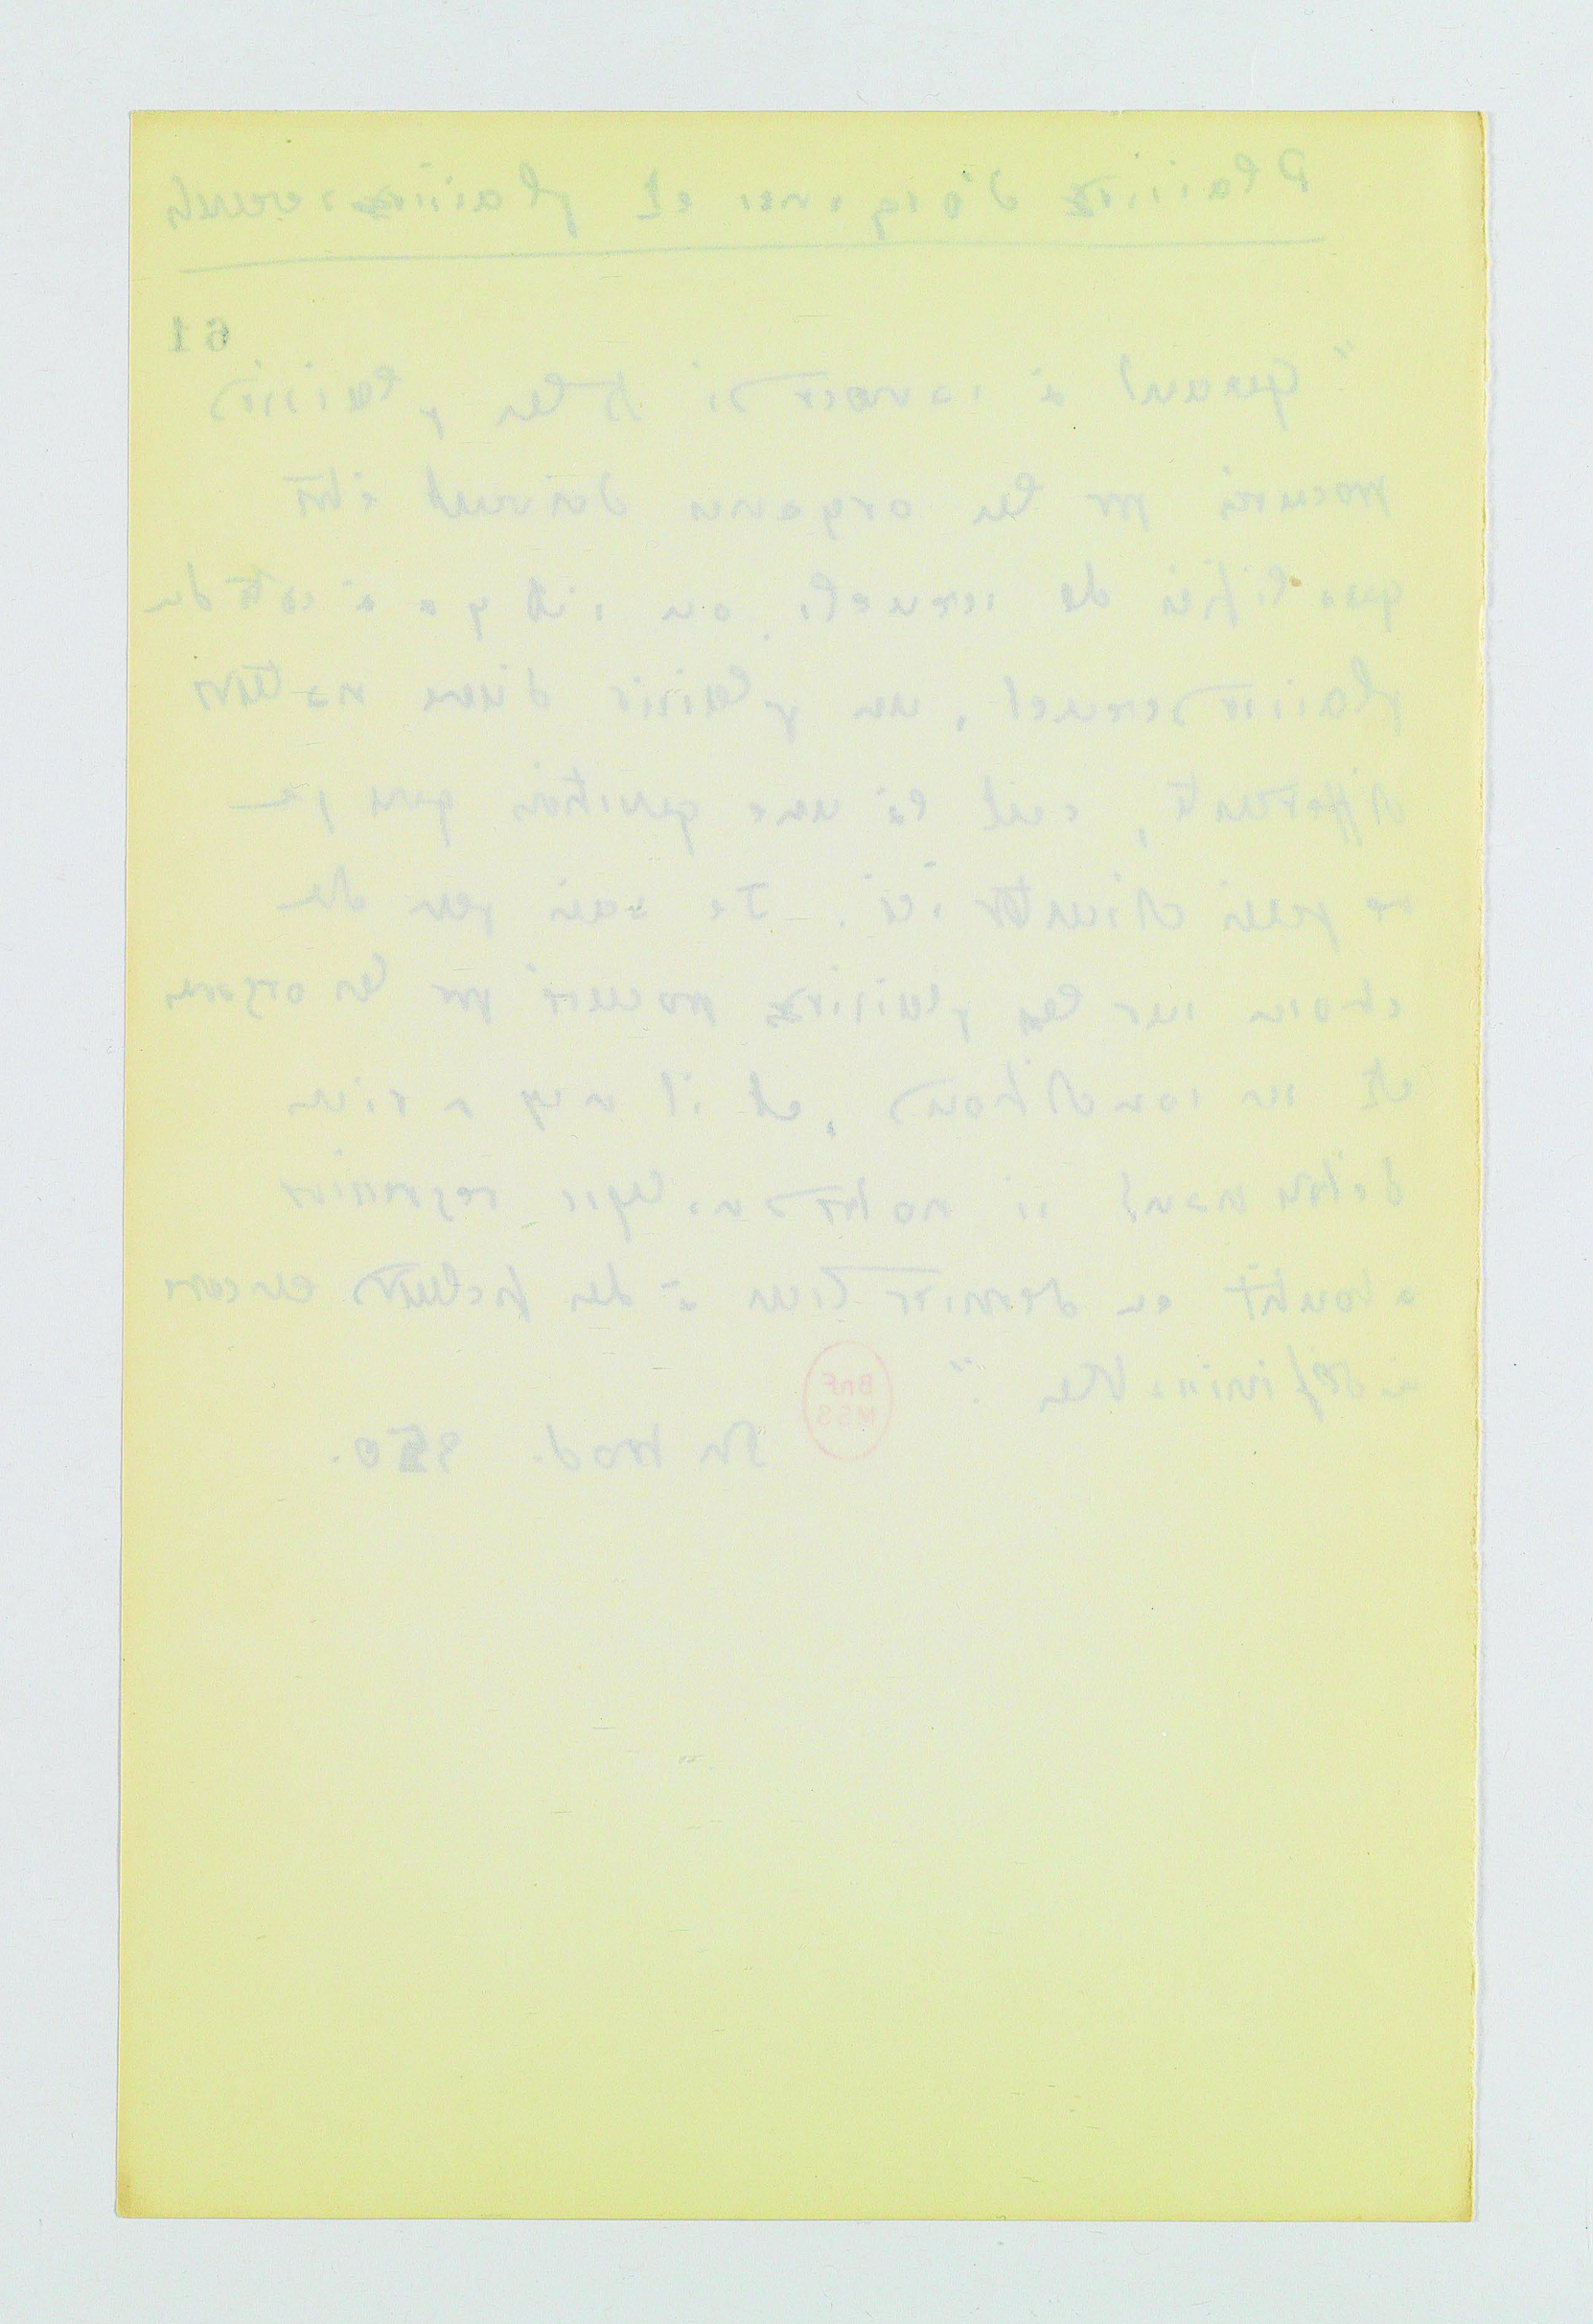 Plaisirs d'organes et plaisirs sexuels
61
"Quant à savoir si tous les plaisirs
procurés par les organes doivent être
qualifiés de sexuels, ou s'il y a à côté du
plaisir sexuel, un plaisir d'une nature
différente, c'est là une question que je
ne puis discuter ici. Je sais peu de
choses sur les plaisirs procurés par les organes
et ses conditions, et il n'y a rien
d'étonnant si notre analyse régressive
aboutit en dernier lieu à des facteurs encore
indéfinissables."
BnF
MSS
Introd. 350.